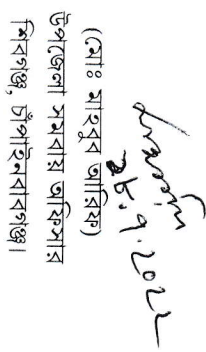 ২৮.৭.২০২২
(মোঃ মাহবুব আরিফ)
উপজেলা সমবায় অফিসার
শিবগঞ্জ, চাঁপাইনবাবগঞ্জ।